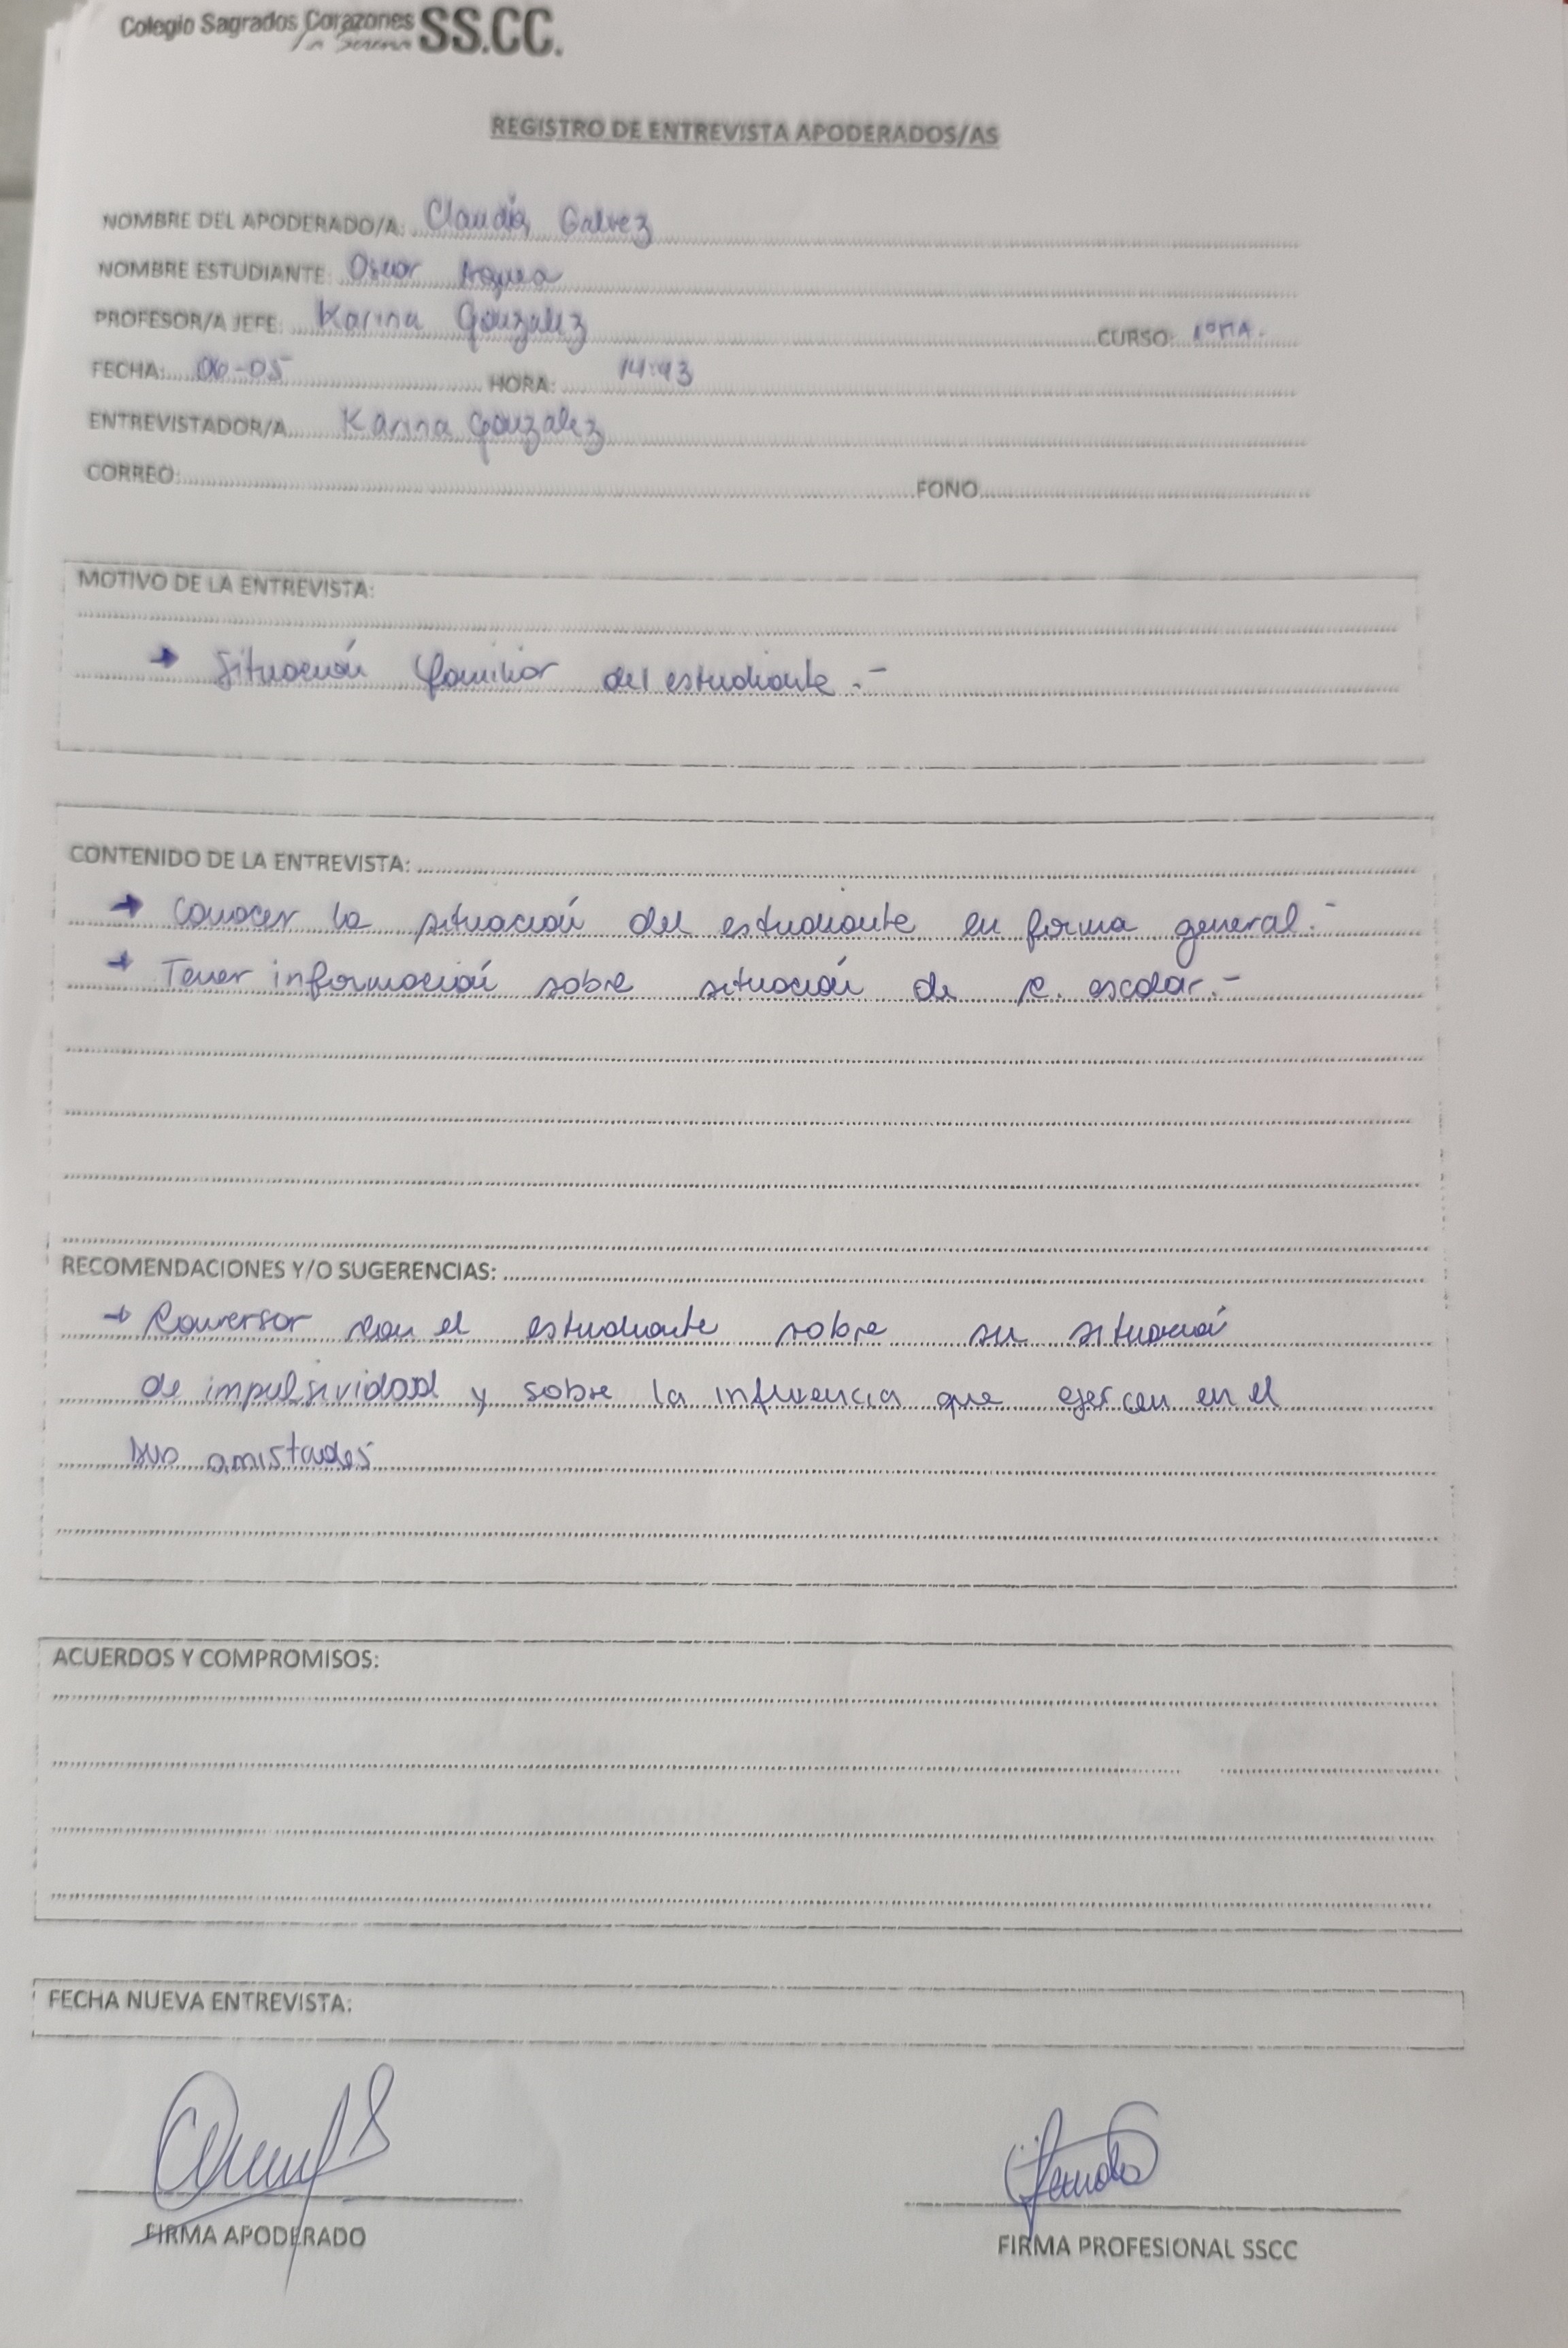 Colegio Sagrados Corazones SS.CC.
La Serena
REGISTRO DE ENTREVISTA APODERADOS/AS
NOMBRE DEL APODERADO/A: Claudia Galvez
NOMBRE ESTUDIANTE: Oscar
PROFESOR/A JEFE: Karina Gonzalez CURSO: 1ºMA.
FECHA: 06-05 HORA: 14:43
ENTREVISTADOR/A Karina Gonzalez
CORREO: FONO
MOTIVO DE LA ENTREVISTA:
→ Situación familiar del estudiante.-
CONTENIDO DE LA ENTREVISTA:
→ Conocer la situación del estudiante en forma general.-
→ Tener información sobre situación de c. escolar.-
RECOMENDACIONES Y/O SUGERENCIAS:
→ Conversar con el estudiante sobre su situación
de impulsividad y sobre la influencia que ejercen en el
sus amistades
ACUERDOS Y COMPROMISOS:
FECHA NUEVA ENTREVISTA:
FIRMA APODERADO
FIRMA PROFESIONAL SSCC